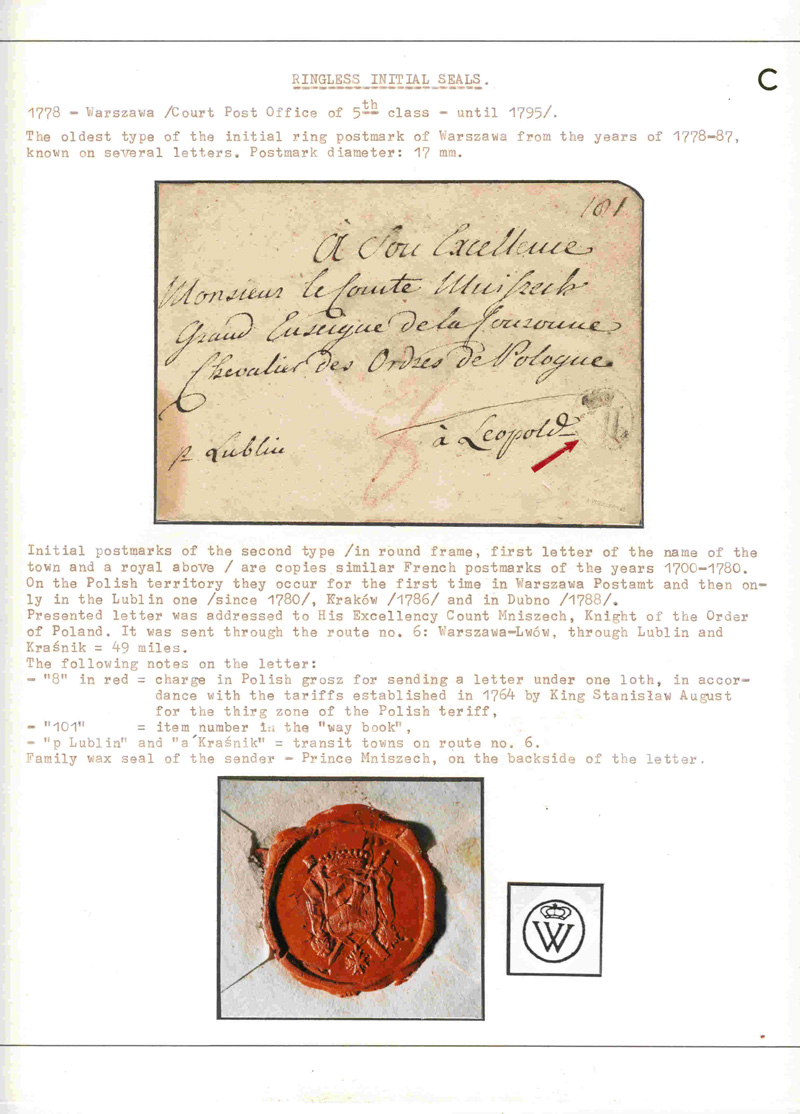 RINGLESS INITIAL SEALS.
C
1778 - Warszawa /Court Post Office of 5th class - until 1795/.
The oldest type of the initial ring postmark of Warszawa from the years of 1778-87,
known on several letters. Postmark diameter: 17 mm.
101
À Son Excellence
Monsieur le Comte Mniszech
Grand Enseigne de la Couronne
Chevalier des Ordres de Pologne
à Leopold
p Lublin
8
Initial postmarks of the second type /in round frame, first letter of the name of the
town and a royal above / are copies similar French postmarks of the years 1700-1780.
On the Polish territory they occur for the first time in Warszawa Postamt and then on-
ly in the Lublin one /since 1780/, Kraków /1786/ and in Dubno /1788/.
Presented letter was addressed to His Excellency Count Mniszech, Knight of the Order
of Poland. It was sent through the route no. 6: Warszawa-Lwów, through Lublin and
Kraśnik = 49 miles.
The following notes on the letter:
- "8" in red = charge in Polish grosz for sending a letter under one loth, in accor-
dance with the tariffs established in 1764 by King Stanisław August
for the thirg zone of the Polish teriff,
- "101" = item number in the "way book",
- "p Lublin" and "a´Kraśnik" = transit towns on route no. 6.
Family wax seal of the sender - Prince Mniszech, on the backside of the letter.
W